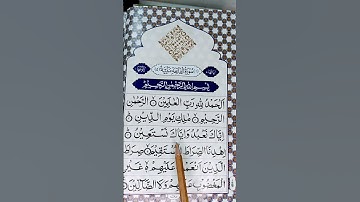 بِسْمِ اللهِ الرَّحْمٰنِ الرَّحِيْمِ
اَلْحَمْدُ لِلّٰهِ رَبِّ الْعٰلَمِيْنَ ۝ الرَّحْمٰنِ
الرَّحِيْمِ ۝ مٰلِكِ يَوْمِ الدِّيْنِ ۝
اِيَّاكَ نَعْبُدُ وَاِيَّاكَ نَسْتَعِيْنُ ۝
اِهْدِنَا الصِّرَاطَ الْمُسْتَقِيْمَ ۝ صِرَاطَ
الَّذِيْنَ اَنْعَمْتَ عَلَيْهِمْ ۝ غَيْرِ
الْمَغْضُوْبِ عَلَيْهِمْ وَلَا الضَّآلِّيْنَ ۝